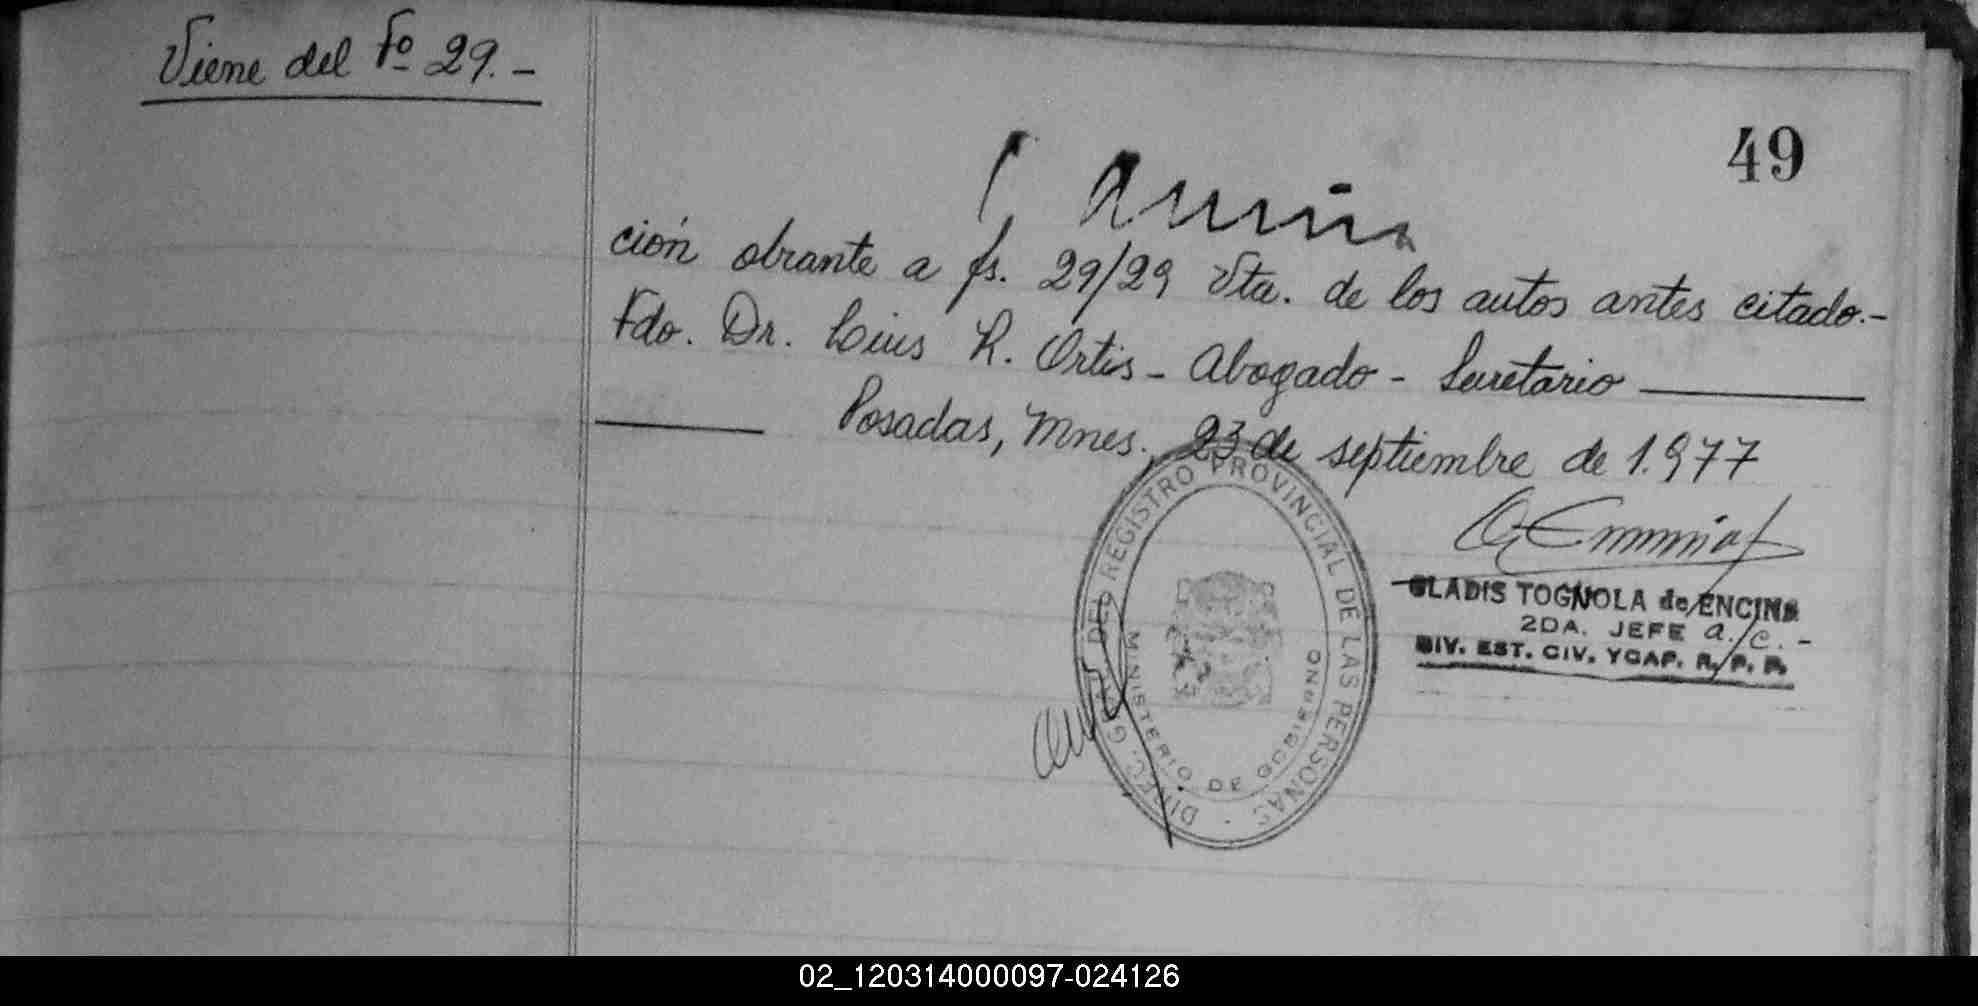 Viene del Fº 29.-
49
ción obrante a fs. 29/29 Vta. de los autos antes citado.-
Fdo. Dr. Luis R. Ortis - Abogado - Secretario
Posadas, Mnes., 23 de septiembre de 1.977
DIREC. GRAL. DEL REGISTRO PROVINCIAL DE LAS PERSONAS
MINISTERIO DE GOBIERNO
GLADIS TOGNOLA de ENCINA
2DA. JEFE a/c.-
DIV. EST. CIV. Y CAP. R. P. P.
02_120314000097-024126